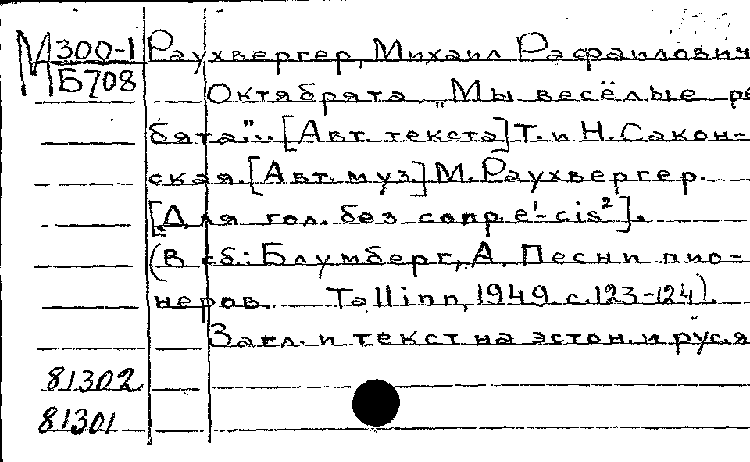 М 300-1 Раухвергер, Михаил Рафаилович
Б708 Октябрята „Мы весёлые ре-
бята"... [Авт. текста] Т. и Н. Сакон-
ская. [Авт. муз.] М. Раухвергер.
[Для гол. без сопр. e¹-cis²].
(В сб.: Блумберг, А. Песни пио-
неров. Tallinn, 1949. с. 123-124).
Загл. и текст на эстон. и рус. я
81302
81301